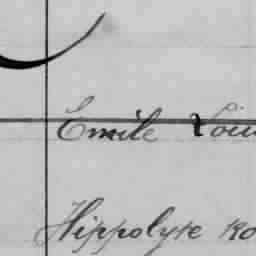 Emile Loui
Hippolyte Ro